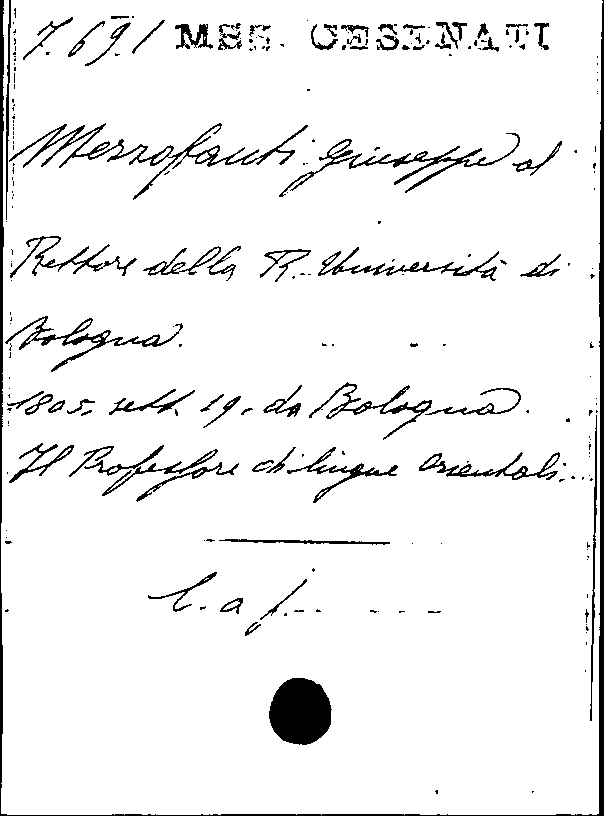 7.69.1 MSS. CESENATI
Mezzofanti Giuseppe al
Rettore della R. Università di
Bologna.
1805. sett. 19. da Bologna.
Il Professore di lingue orientali...
L. a f.